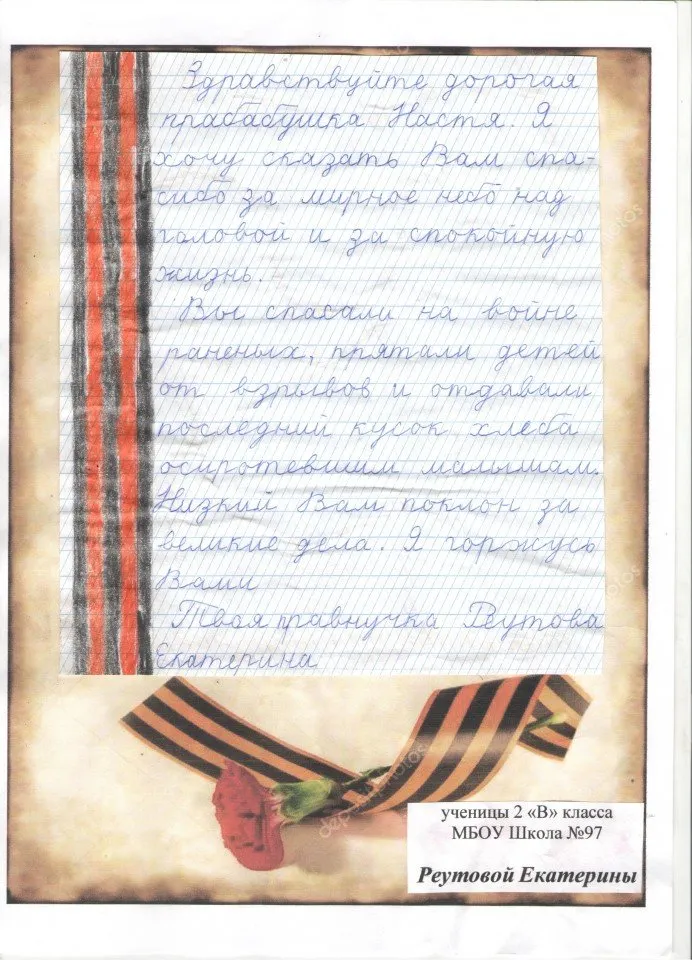 Здравствуйте дорогая
прабабушка Настя. Я
хочу сказать Вам спа-
сибо за мирное небо над
головой и за спокойную
жизнь.
Вы спасали на войне
раненых, прятали детей
от взрывов и отдавали
последний кусок хлеба
осиротевшим малышам.
Низкий Вам поклон за
великие дела. Я горжусь
Вами
Твоя правнучка Реутова
Екатерина
depositphotos
ученицы 2 «В» класса
МБОУ Школа №97
Реутовой Екатерины